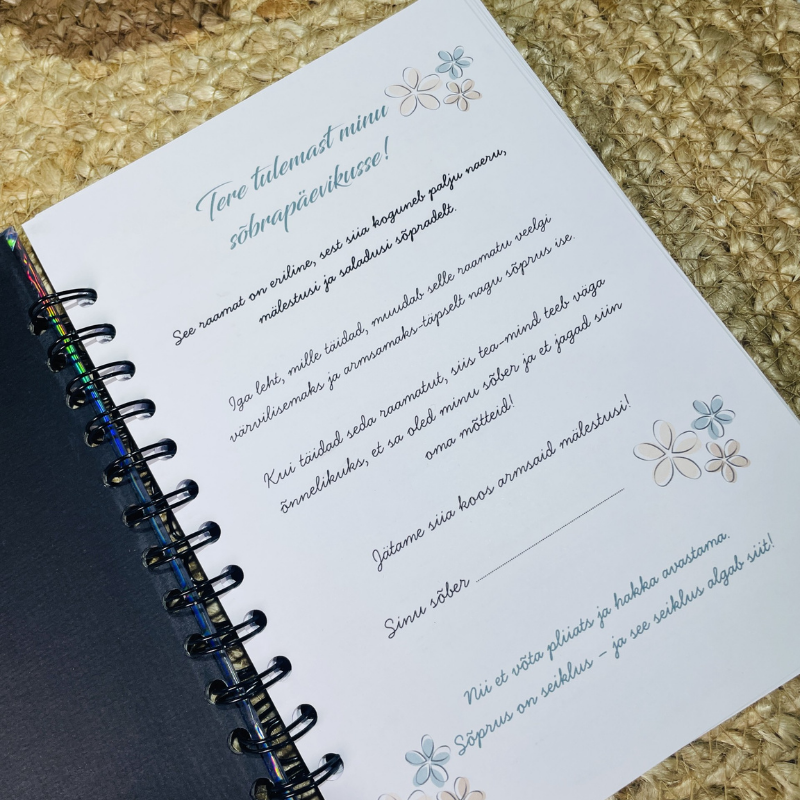 Tere tulemast minu
sõbrapäevikusse!
See raamat on eriline, sest siia koguneb palju naeru,
mälestusi ja saladusi sõpradelt.
Iga leht, mille täidad, muudab selle raamatu veelgi
värvilisemaks ja armsamaks-täpselt nagu sõprus ise.
Kui täidad seda raamatut, siis tea-mind teeb väga
õnnelikuks, et sa oled minu sõber ja et jagad siin
oma mõtteid!
Jätame siia koos armsaid mälestusi!
Sinu sõber
Nii et võta pliiats ja hakka avastama.
Sõprus on seiklus – ja see seiklus algab siit!